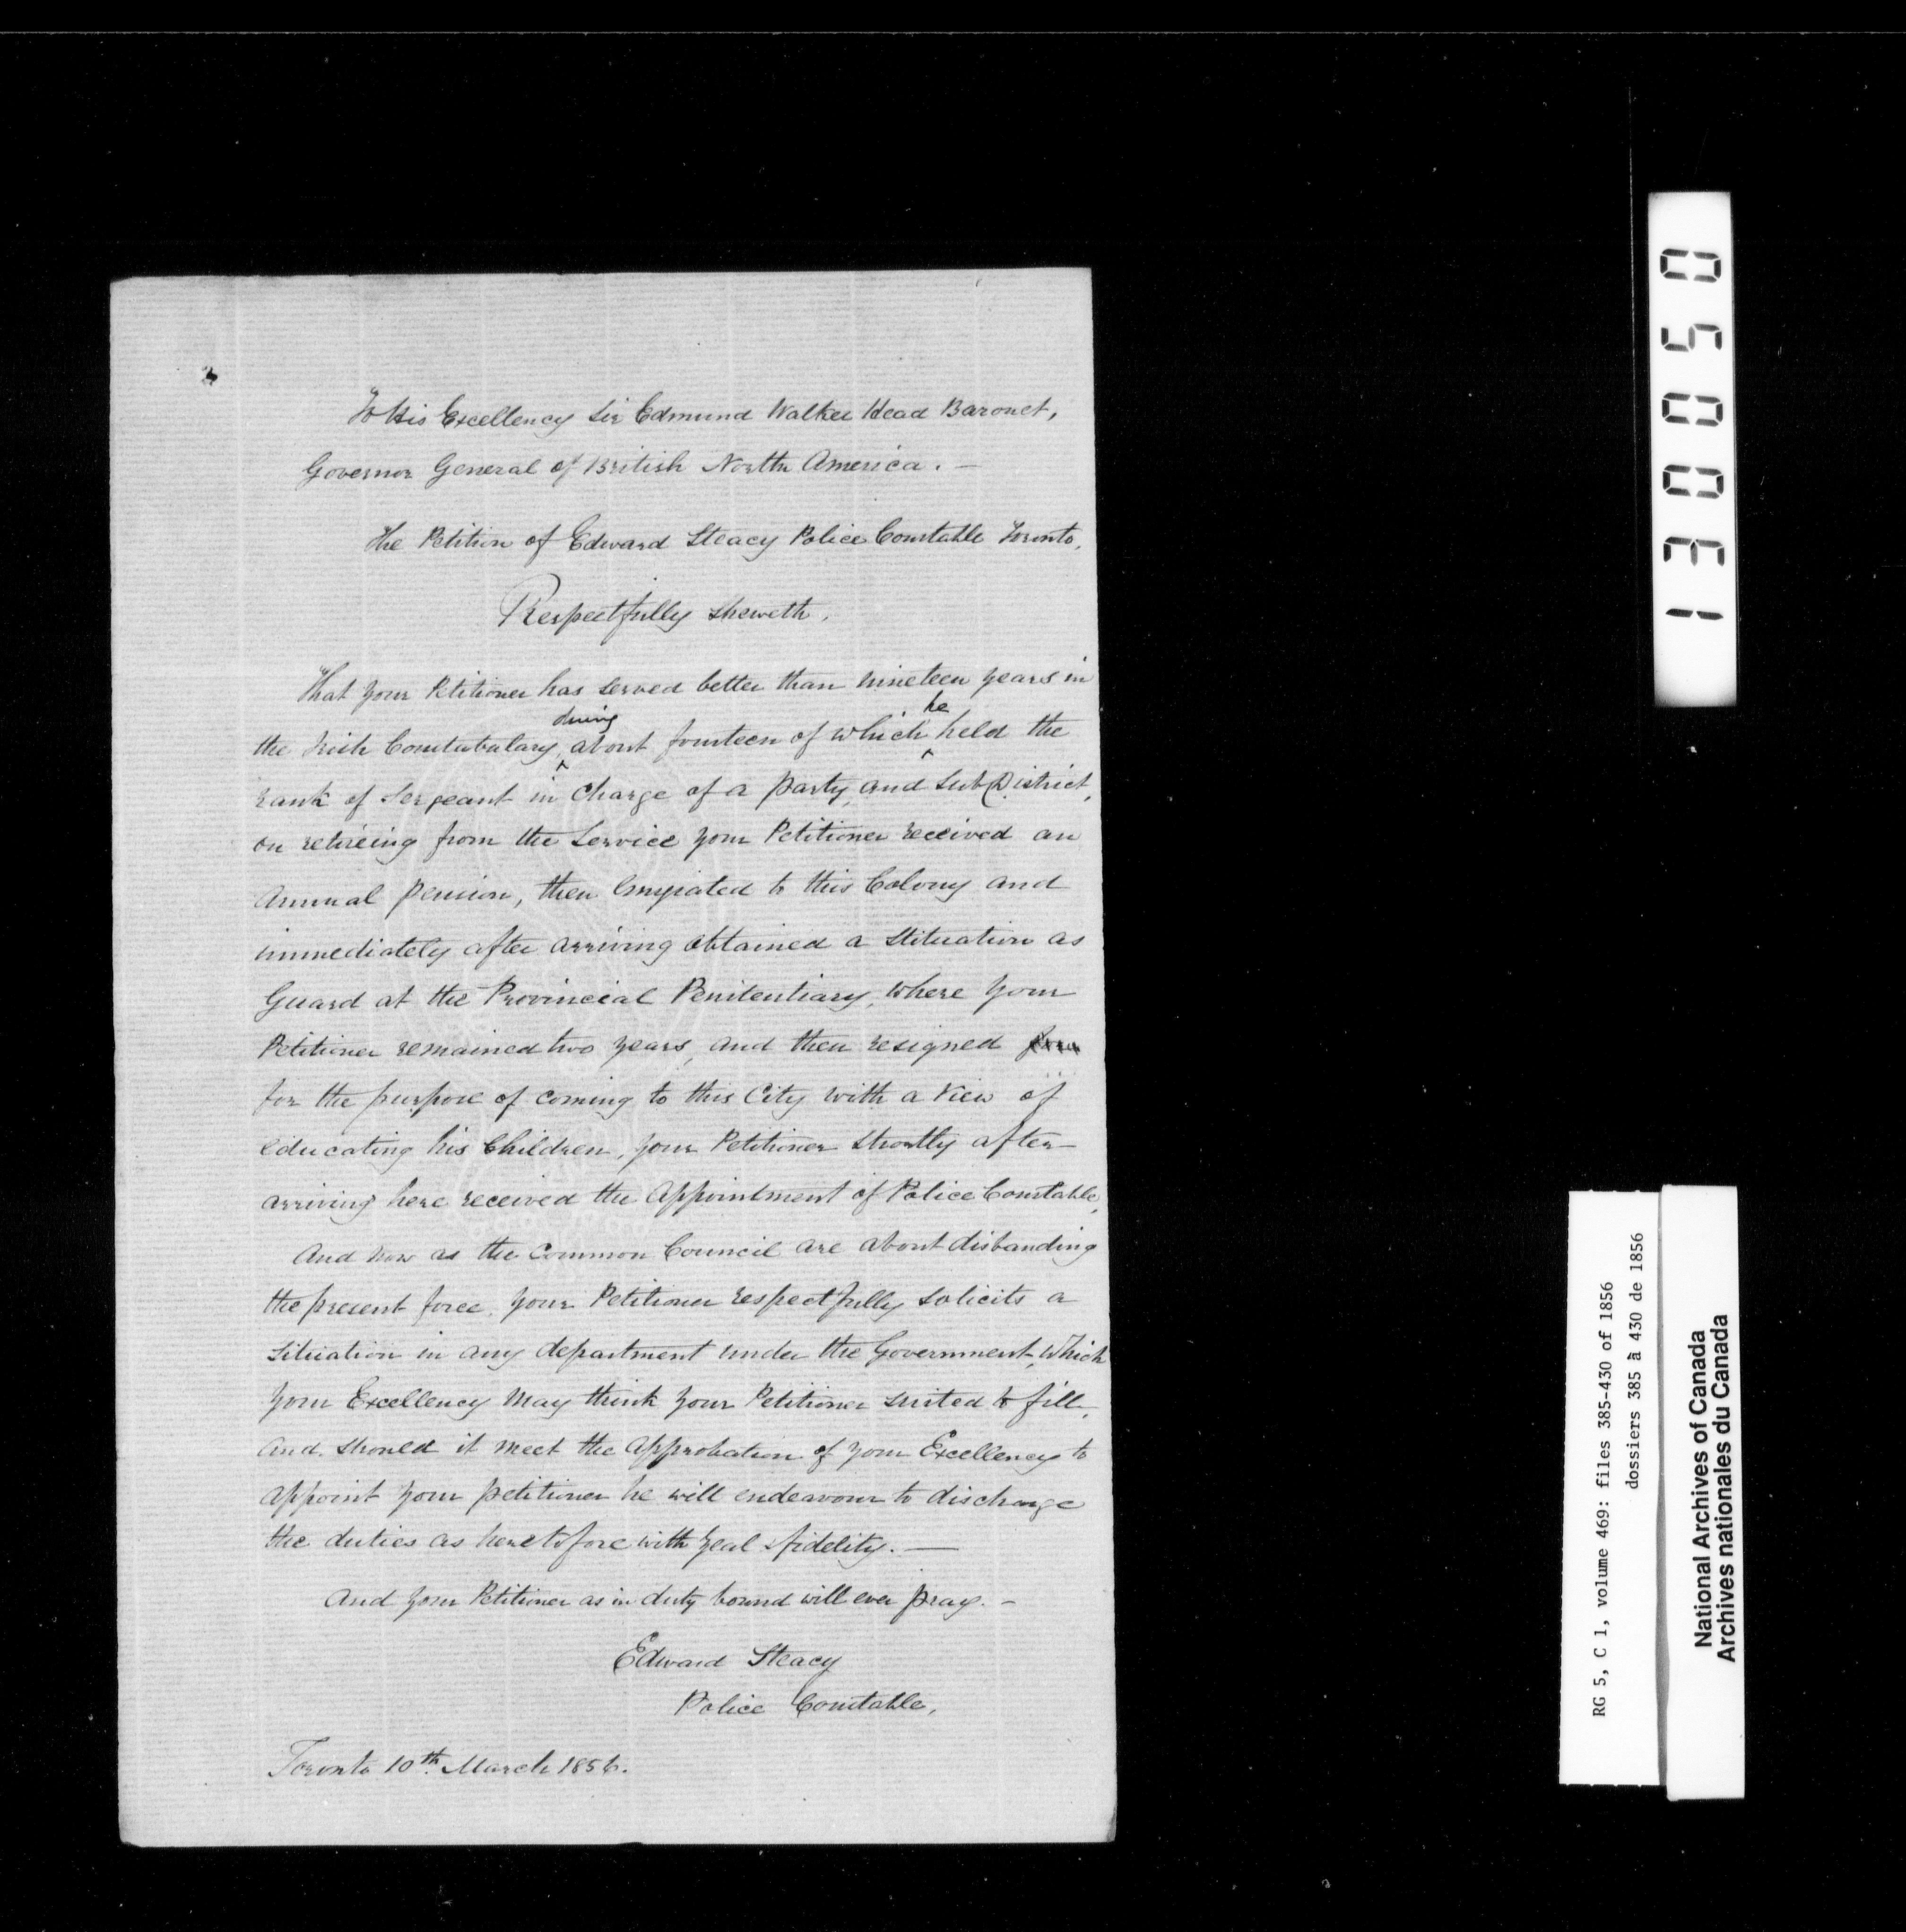 To His Excellency Sir Edmund Walker Head Baronet,
Governor General of British North America. —
The Petition of Edward Steacy Police Constable Toronto,
Respectfully sheweth,
That your Petitioner has served better than nineteen years in
the Irish Constabulary, during about fourteen of which he held the
rank of Sergeant in Charge of a party, and Sub District,
on retireing from the Service your Petitioner received an
Annual Pension, then Emigrated to this Colony and
immediately after arriving obtained a Stituation as
Guard at the Provincial Penitentiary, where your
Petitioner remained two years, and then resigned
for the purpose of coming to this City with a View of
educating his Children, your Petitioner Shortly after
arriving here received the Appointment of Police Constable,
And now as the Common Council are about disbanding
the present force, your Petitioner respectfully solicits a
Situation in any department under the Government, which
your Excellency May think your Petitioner suited to fill,
And should it meet the Approbation of your Excellency to
appoint your petitioner he will endeavour to discharge
the duties as heretofore with zeal & fidelity. —
And your Petitioner as in duty bound will ever pray. –
Edward Steacy
Police Constable,
Toronto 10th. March 1856.
130050
RG 5, C 1, volume 469: files 385-430 of 1856
dossiers 385 à 430 de 1856
National Archives of Canada
Archives nationales du Canada